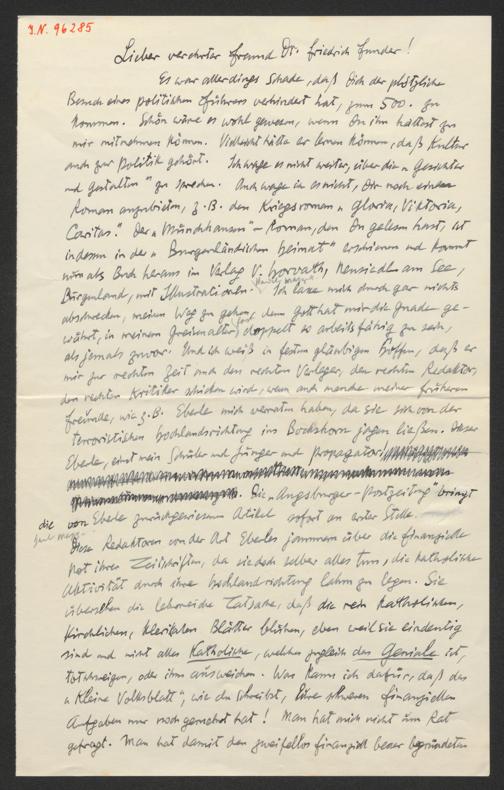 J.N. 96285
Lieber verehrter Freund Dr. Friedrich Funder!
Es war allerdings schade, daß Dich der plötzliche
Besuch eines politischen Führers verhindert hat, zum 500. zu
kommen. Schön wäre es wohl gewesen, wenn Du ihn hättest zu
mir mitnehmen können. Vielleicht hätte er lernen können, daß Kultur
auch zur Politik gehört. Ich wage es nicht weiter, über die „Gesichter
und Gestalten" zu sprechen. Auch wage ich es nicht, Dir noch einen
Roman anzubieten, z.B. den Kriegsroman „Gloria, Viktoria,
Caritas." Der „Münchhausen"-Roman, den Du gelesen hast, ist
indessen in der „Burgenländischen Heimat" erschienen und kommt
nun als Buch heraus im Verlag V. Horvath, Neusiedl am See,
Burgenland, mit Illustrationen. Ich lasse mich durch gar nichts
abschrecken, meinen Weg zu gehen, denn Gott hat mir die Gnade ge-
währt, in meinem Greisenalter doppelt so arbeitsfähig zu sein,
als jemals zuvor. Und ich weiß in festem gläubigen Hoffen, daß er
mir zur rechten Zeit auch den rechten Verleger, den rechten Redaktor,
den rechten Kritiker schicken wird, wenn auch manche meiner früheren
Freunde, wie z.B. Eberle mich verraten haben, da sie sich von der
terroristischen Hochlandsrichtung ins Bockshorn jagen ließen. Dieser
Eberle, einst mein Schüler und Jünger und Propagator!
Die „Augsburger-Postzeitung" bringt
die von Eberle zurückgewiesenen Artikel sofort an erster Stelle.
Diese Redaktoren von der Art Eberles jammern über die finanzielle
Not ihrer Zeitschriften, da sie doch selber alles tun, die katholische
Aktivität durch ihre Hochlandrichtung lahm zu legen. Sie
übersehen die lehrreiche Tatsache, daß die rein katholischen,
kirchlichen, klerikalen Blätter blühen, eben weil sie eindeutig
sind und nicht alles Katholische, welches zugleich das Geniale ist,
totschweigen, oder ihm ausweichen. Was kann ich dafür, daß das
„Kleine Volksblatt", wie du schreibst, Eure schweren finanziellen
Aufgaben nur noch gemehrt hat! Man hat mich nicht um Rat
gefragt. Man hat damit den zweifellos finanziell besser begründeten